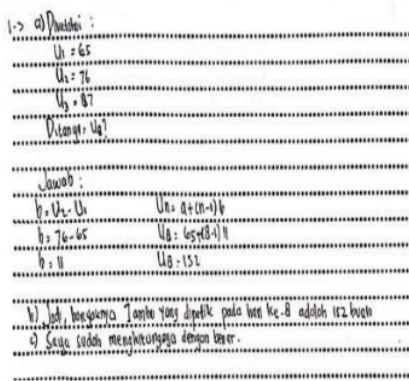 1.) a) Diketahui :
U₁ = 65
U₂ = 76
U₃ = 87
Ditanya = U₈?
Jawab :
b = U₂ - U₁ Un = a + (n-1) b
b = 76 - 65 U₈ = 65 + (8-1) 11
b = 11 U₈ = 152
b) Jadi, banyaknya Jambu yang dipetik pada hari ke-8 adalah 152 buah
c) Saya sudah menghitungnya dengan benar.